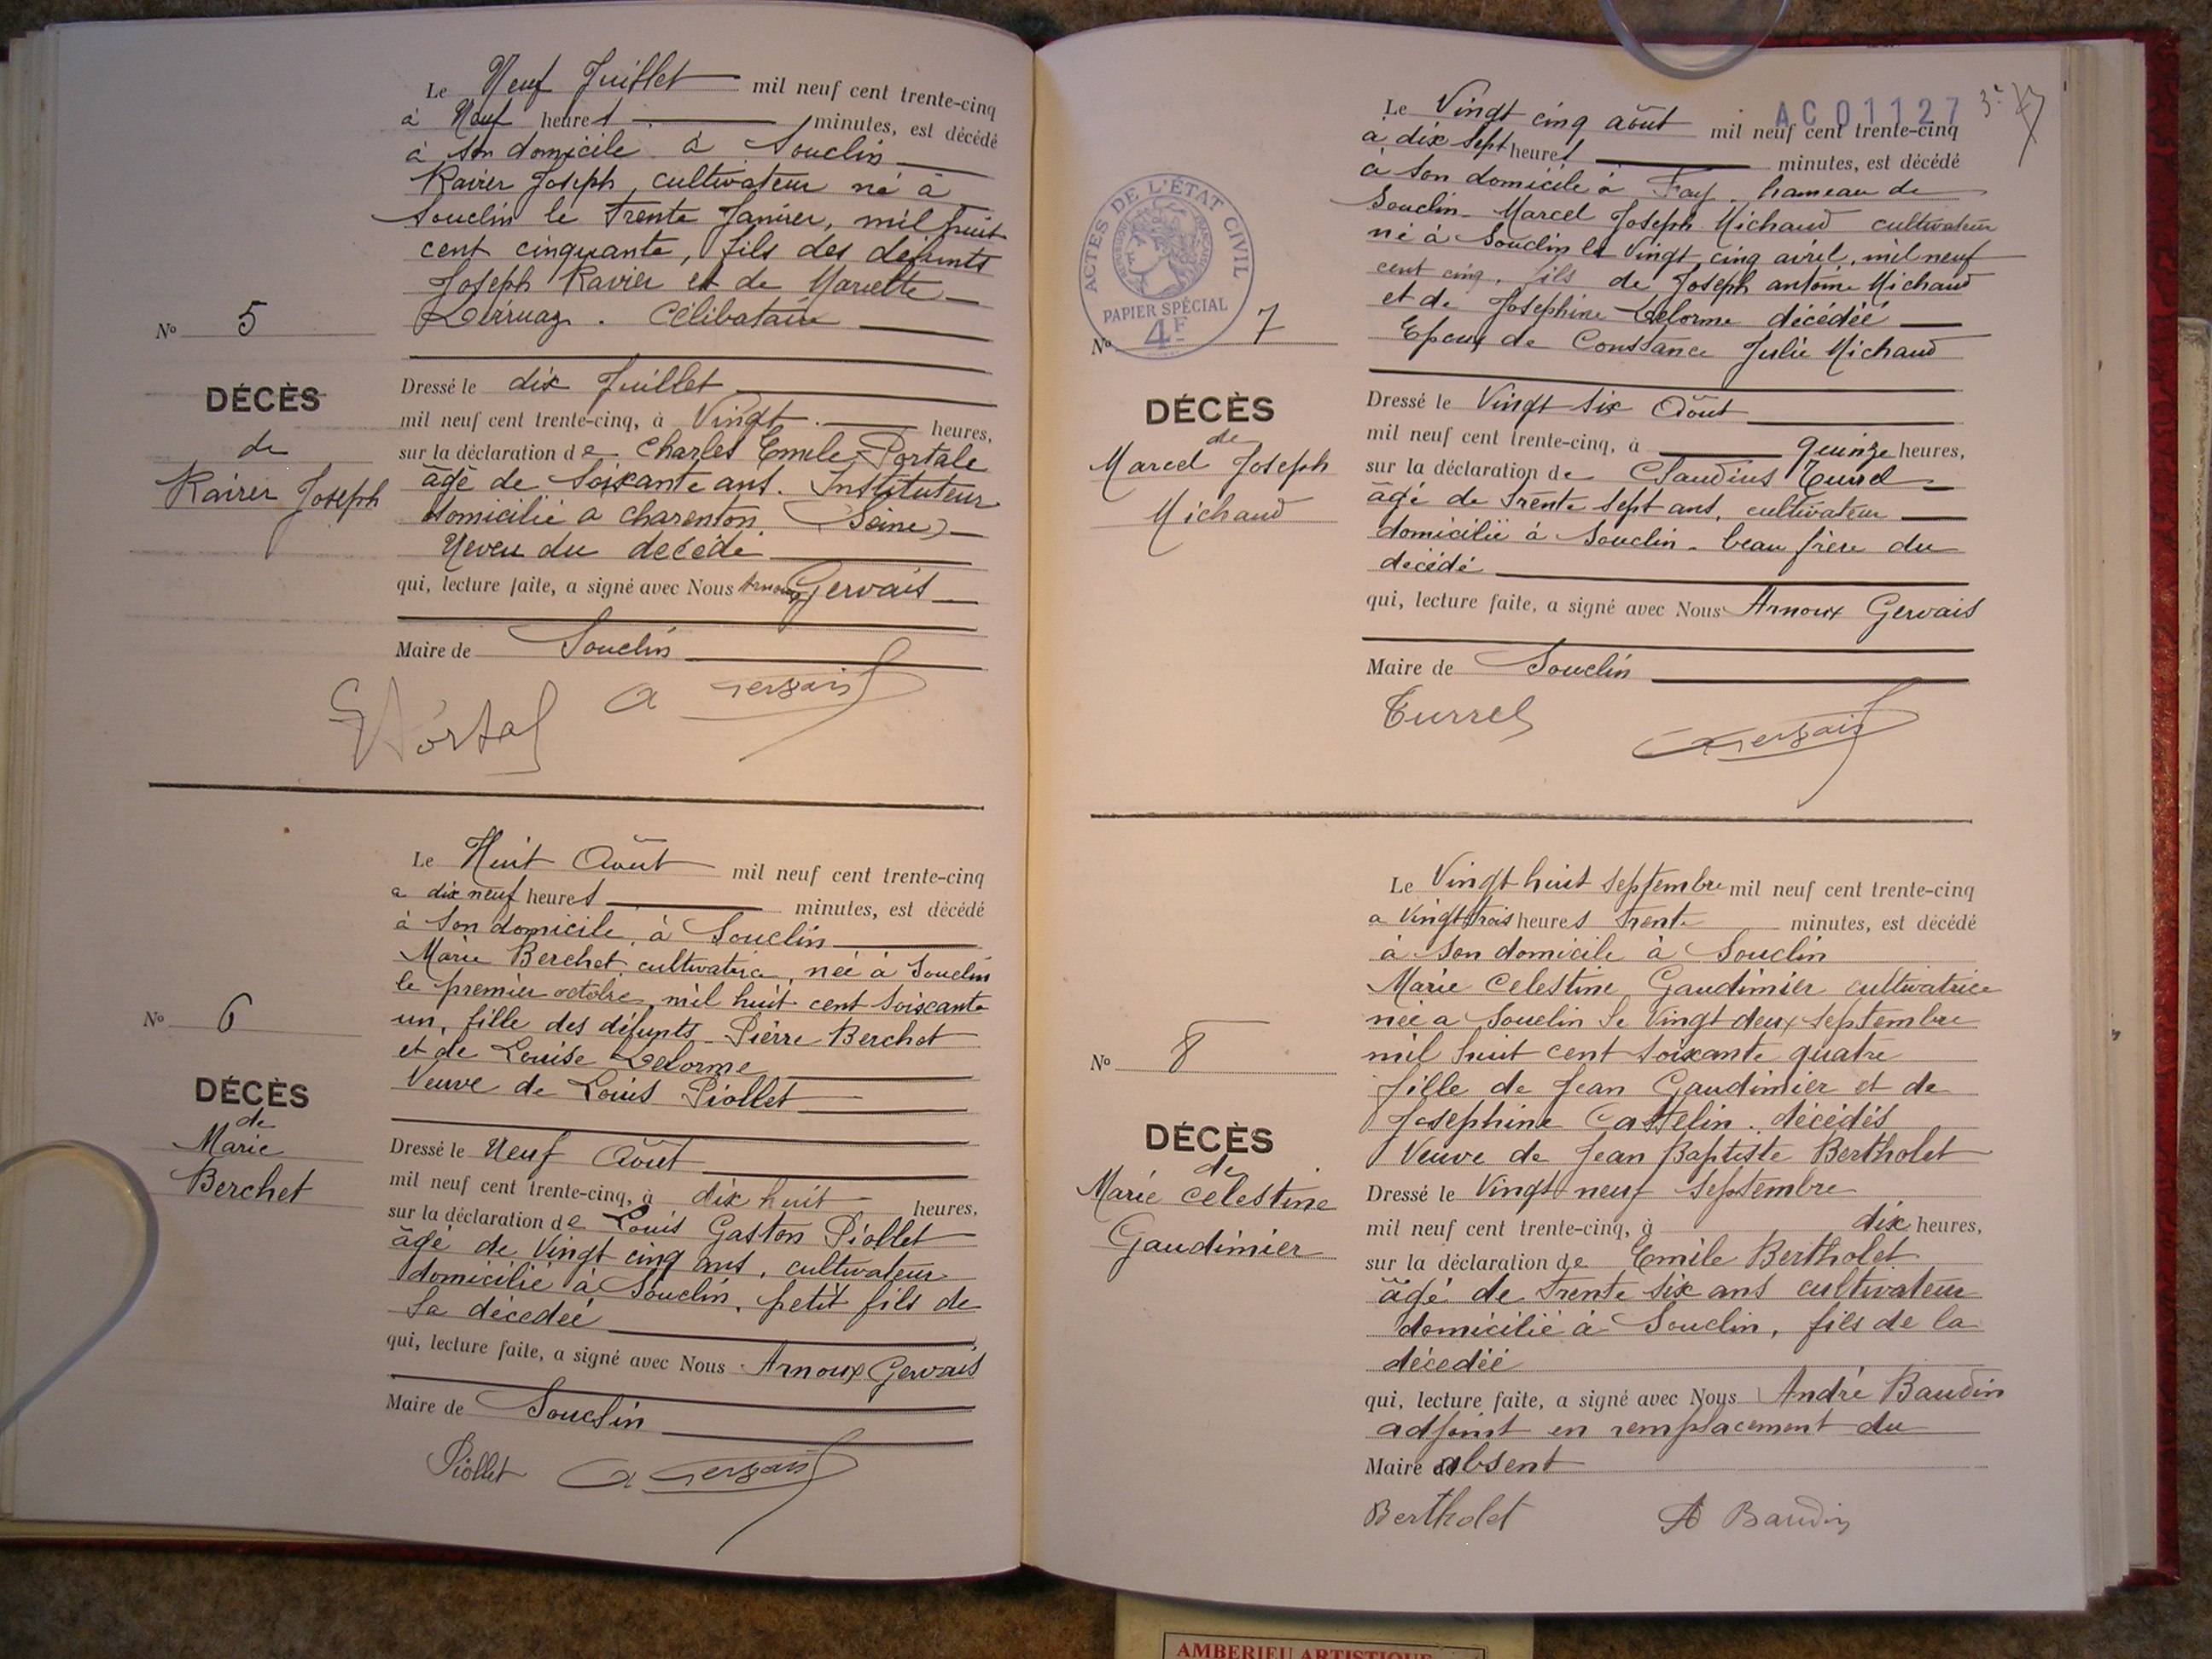 Le Neuf Juillet mil neuf cent trente-cinq
à Neuf heures minutes, est décédé
à son domicile à Souclin
Ravier Joseph, cultivateur né à
Souclin le trente Janvier, mil huit
cent cinquante, fils des défunts
Joseph Ravier et de Mariette
Célibataire
No 5
DÉCÈS
de
Ravier Joseph
Dressé le dix Juillet
mil neuf cent trente-cinq, à Vingt heures,
sur la déclaration de Charles Emile Portale
âgé de Soixante ans. Instituteur
domicilié a charenton (Seine)
Neveu du décédé
qui, lecture faite, a signé avec Nous Arnoux Gervais
Maire de Souclin
A Gervais
Le Huit Août mil neuf cent trente-cinq
a dix neuf heures minutes, est décédé
à son domicile, à Souclin
Marie Berchet, cultivatrice, née à Souclin
le premier octobre mil huit cent soixante
un, fille des défunts Pierre Berchet
et de Louise Delorme
Veuve de Louis Piollet
No 6
DÉCÈS
de
Marie
Berchet
Dressé le Neuf Août
mil neuf cent trente-cinq, à dix huit heures,
sur la déclaration de Louis Gaston Piollet
âgé de Vingt cinq ans, cultivateur
domicilié à Souclin, petit fils de
la décédée
qui, lecture faite, a signé avec Nous Arnoux Gervais
Maire de Souclin
Piollet A Gervais
AC01127
Le Vingt cinq août mil neuf cent trente-cinq
a dix sept heures minutes, est décédé
à son domicile à Fay, hameau de
Souclin Marcel Joseph Michaud cultivateur
né à Souclin le Vingt cinq avril, mil neuf
cent cinq, fils de Joseph antoine Michaud
et de Joséphine Delorme décédée
Epoux de Constance Julie Michaud
ACTES DE L'ÉTAT CIVIL
RÉPUBLIQUE FRANÇAISE
PAPIER SPÉCIAL
4F
No 7
DÉCÈS
de
Marcel Joseph
Michaud
Dressé le Vingt six Août
mil neuf cent trente-cinq, à quinze heures,
sur la déclaration de Claudius Turrel
âgé de trente sept ans, cultivateur
domicilié à Souclin - beau frère du
décédé
qui, lecture faite, a signé avec Nous Arnoux Gervais
Maire de Souclin
Turrel A Gervais
Le Vingt huit septembre mil neuf cent trente-cinq
a Vingt trois heures trente minutes, est décédé
à son domicile à Souclin
Marie Celestine Gaudimier cultivatrice
née a Souclin le Vingt deux septembre
mil huit cent soixante quatre
fille de Jean Gaudimier et de
Josephine Cattelin. décédés
Veuve de Jean Baptiste Bertholet
No 8
DÉCÈS
de
Marie Célestine
Gaudimier
Dressé le Vingt neuf septembre
mil neuf cent trente-cinq, à dix heures,
sur la déclaration de Emile Bertholet
âgé de trente six ans cultivateur
domicilié à Souclin, fils de la
décedée
qui, lecture faite, a signé avec Nous André Baudin
adjoint en remplacement du
Maire absent
Bertholet A Baudin
AMBERIEU ARTISTIQUE